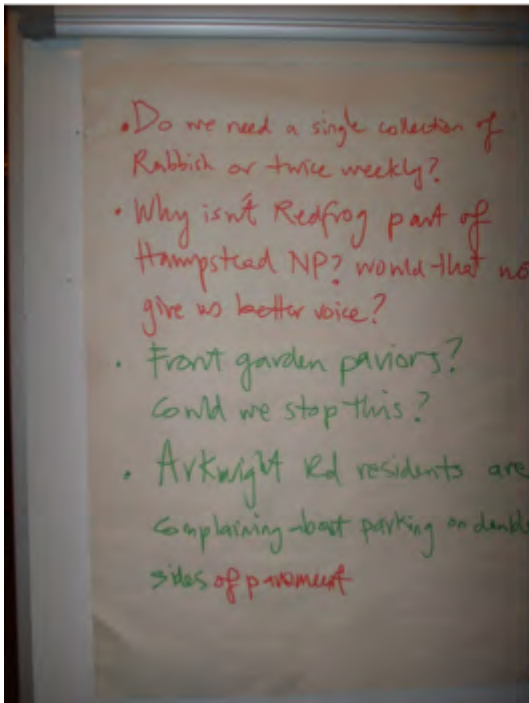 • Do we need a single collection of
Rabbish or twice weekly?
• Why isn't Redfrog part of
Hampstead NP? would that no
give us better voice?
• Front garden paviors?
Could we stop this?
• Arkwright Rd residents are
complaining about parking on double
sides of pavement